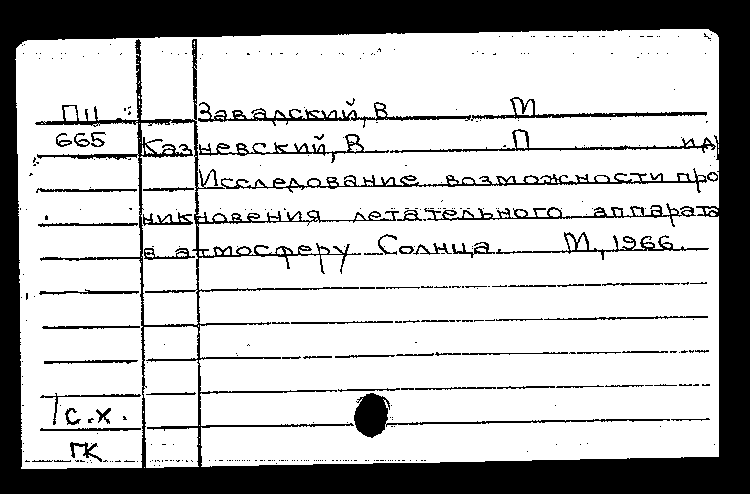 П11 Завадский, В М
665 Казневский, В П и др
Исследование возможности про
никновения летательного аппарата
в атмосферу Солнца. М., 1966.
1 с.х.
ГК